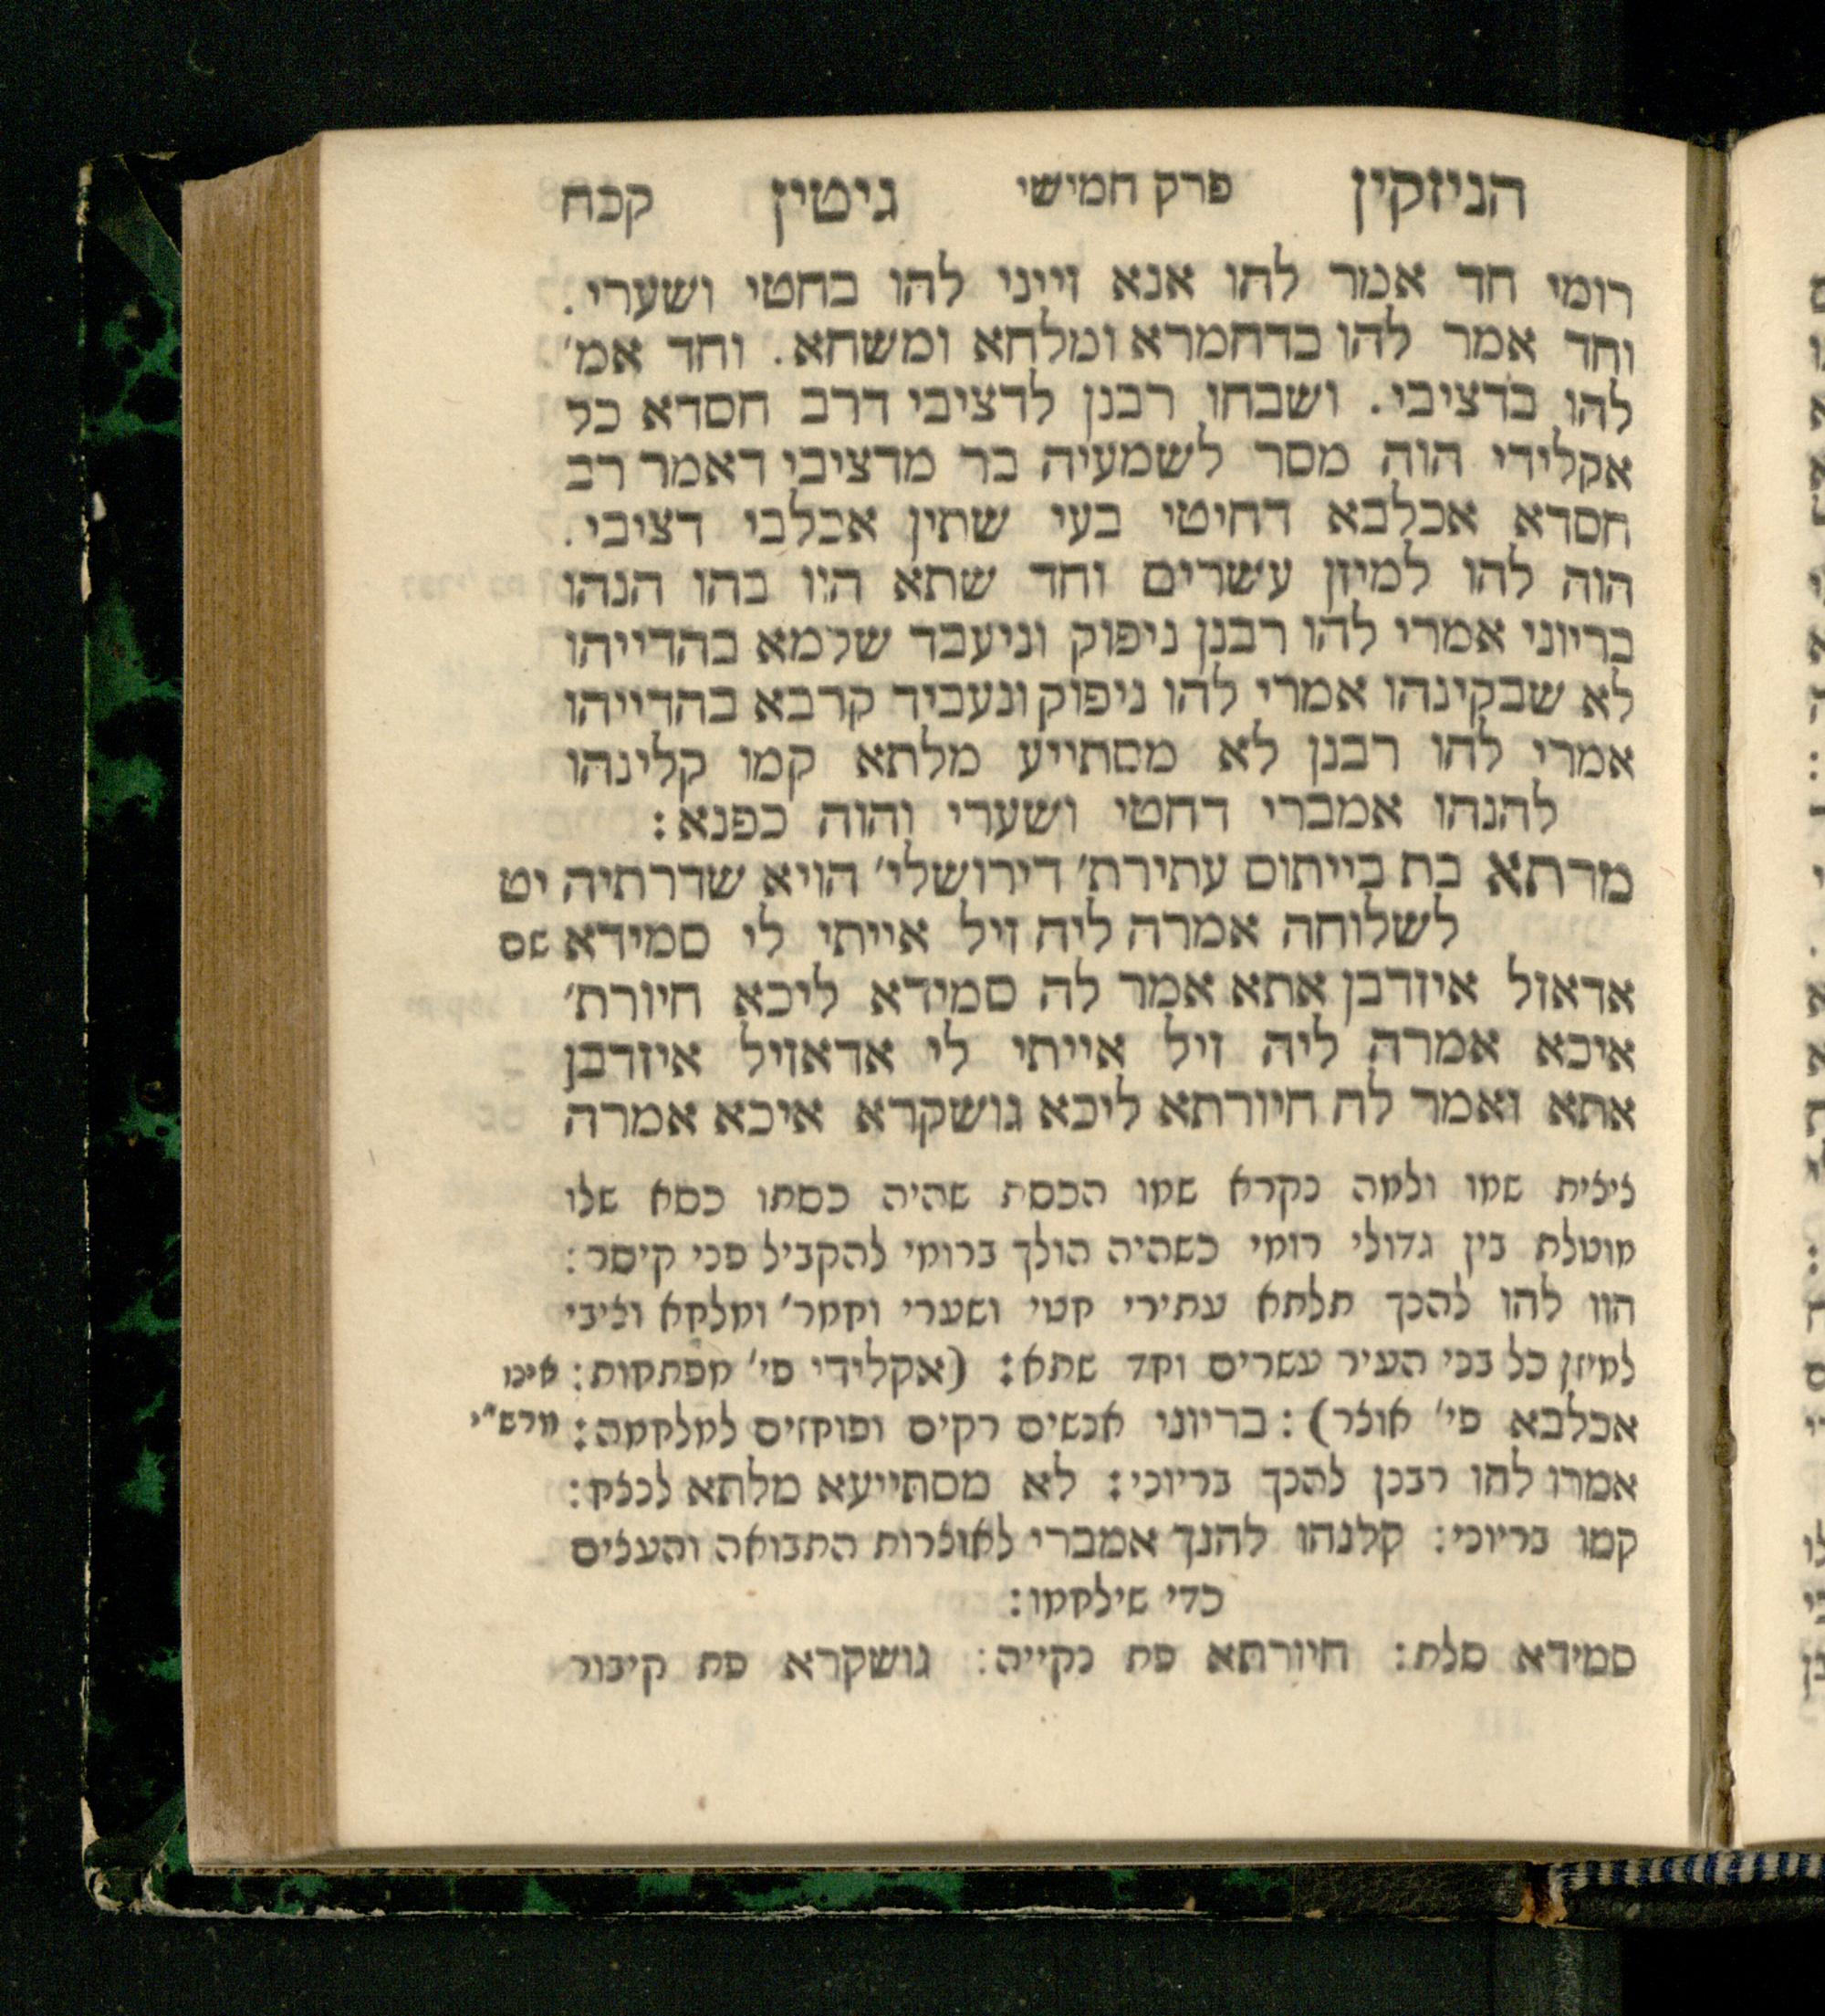 הניזקין פרק חמישי גיטין קכח
רומי חד אמר להו אנא זייני להו בחטי ושערי.
וחד אמר להו בדחמרא ומלחא ומשחא. וחד אמ׳
להו בדציבי. ושבחו רבנן לדציבי דרב חסדא כל
אקלידי הוה מסר לשמעיה בר מדציבי דאמר רב
חסדא אכלבא דחיטי בעי שתין אכלבי דציבי.
הוה להו למיזן עשרים וחד שתא היו בהו הנהו
בריוני אמרי להו רבנן ניפוק וניעבד שלמא בהדייהו
לא שבקינהו אמרי להו ניפוק ונעביד קרבא בהדייהו
אמרי להו רבנן לא מסתייע מלתא קמו קלינהו
להנהו אמברי דחטי ושערי והוה כפנא:
מרתא בת בייתוס עתירת׳ דירושלי׳ הויא שדרתיה יט
לשלוחה אמרה ליה זיל אייתי לי סמידא שם
אדאזל איזדבן אתא אמר לה סמידא ליכא חיורת׳
איכא אמרה ליה זיל אייתי לי אדאזיל איזדבן
אתא ואמר לה חיורתא ליכא גושקרא איכא אמרה
ציצית שמו ולמה נקרא שמו הכסת שהיה כסתו כסא שלו
מוטלת בין גדולי רומי כשהיה הולך ברומי להקביל פני קיסר:
הוו להו להנך תלתא עתירי חטי ושערי וחמר׳ ומלחא וציבי
למיזן כל בני העיר עשרים וחד שתא: (אקלידי פי׳ מפתחות: אינו
אכלבא פי׳ אוצר): בריוני אנשים רקים ופוחזים למלחמה: מרש״י
אמרו להו רבנן להנך בריוני: לא מסתייעא מלתא לנצח:
קמו בריוני: קלנהו להנך אמברי לאוצרות התבואה והעצים
כדי שילחמו:
סמידא סלת: חיורתא פת נקייה: גושקרא פת קיבור